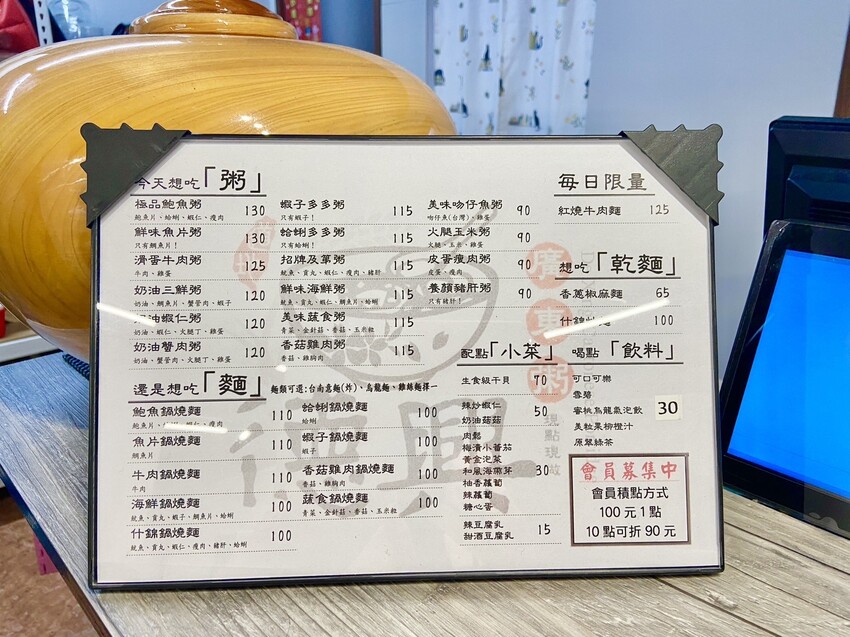 今天想吃「粥」
極品鮑魚粥 130
鮑魚片、蛤蜊、蝦仁、瘦肉
鮮味魚片粥 115
只有鯛魚片！
滑蛋牛肉粥 125
牛肉、雞蛋
奶油三鮮粥 120
奶油、鯛魚片、蟹管肉、蝦子
油蝦仁粥 120
奶油、蝦仁、火腿丁、雞蛋
奶油蟹肉粥 120
奶油、蟹管肉、火腿丁、雞蛋
蝦子多多粥 115
只有蝦子！
蛤蜊多多粥 115
只有蛤蜊！
招牌及第粥 115
魷魚、貢丸、蝦仁、瘦肉、豬肝
鮮味海鮮粥 115
魷魚、貢丸、蝦仁、鯛魚片、蛤蜊
美味蔬食粥 115
青菜、金針菇、香菇、玉米粒
香菇雞肉粥 115
香菇、雞胸肉
美味吻仔魚粥 90
吻仔魚(台灣)、雞蛋
火腿玉米粥 90
火腿、玉米、雞蛋
皮蛋瘦肉粥 90
皮蛋、瘦肉
養顏豬肝粥 90
只有豬肝！
每日限量
紅燒牛肉麵 125
想吃「乾麵」
香蔥椒麻麵 65
什錦炒麵 100
還是想吃「麵」 麵類可選:台南意麵(炸)、烏龍麵、雞絲麵擇一
鮑魚鍋燒麵 110
鮑魚片、蛤蜊、蝦仁、瘦肉
魚片鍋燒麵 110
鯛魚片
牛肉鍋燒麵 110
牛肉
海鮮鍋燒麵 100
魷魚、貢丸、蝦子、鯛魚片、蛤蜊
什錦鍋燒麵 100
魷魚、貢丸、蝦仁、瘦肉、豬肝、蛤蜊
蛤蜊鍋燒麵 100
蛤蜊
蝦子鍋燒麵 100
蝦子
香菇雞肉鍋燒麵 100
香菇、雞胸肉
蔬食鍋燒麵 100
青菜、金針菇、香菇、玉米粒
配點「小菜」
生食級干貝 70
辣炒蝦仁 50
奶油菇菇
肉鬆
梅漬小番茄
黃金泡菜
和風海帶芽 30
柚香蘿蔔
辣蘿蔔
糖心蛋
辣豆腐乳 15
甜酒豆腐乳
喝點「飲料」
可口可樂
雪碧
蜜桃烏龍氣泡飲 30
美粒果柳橙汁
原翠綠茶
會員募集中
會員積點方式
100 元 1 點
10 點可折 90 元
廣東粥
現點現做
德興